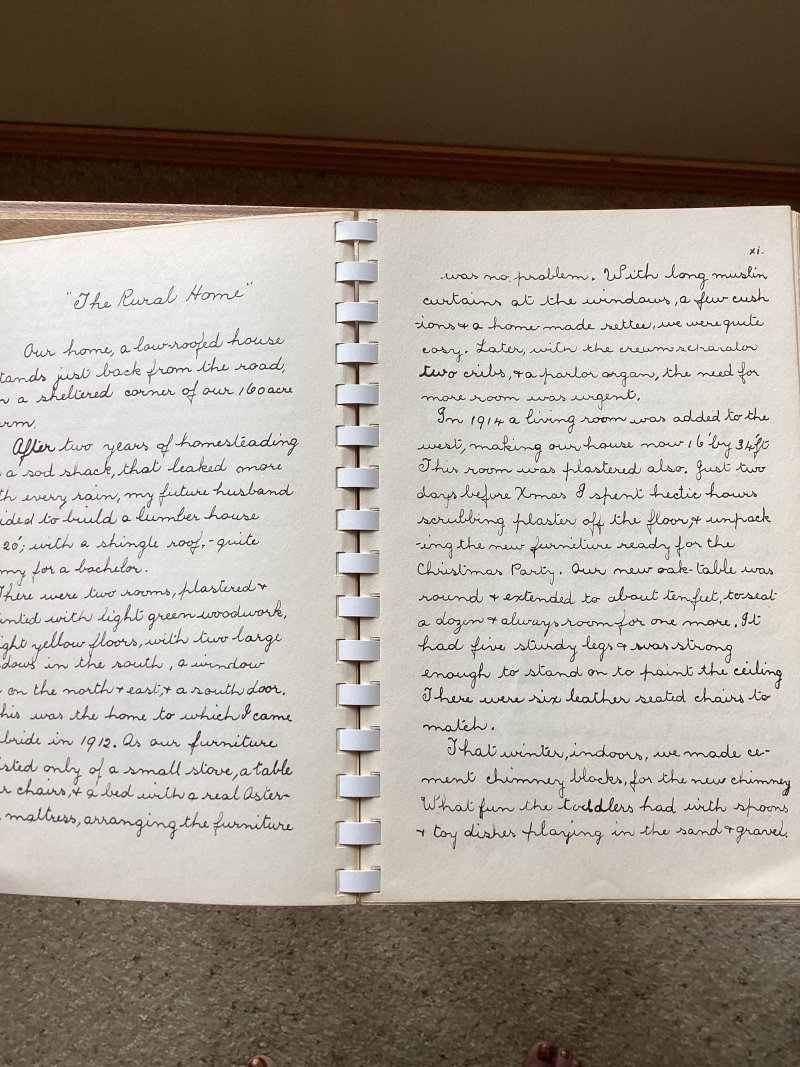 "The Rural Home"
Our home, a low-roofed house
tands just back from the road,
a sheltered corner of our 160 acre
rm.
After two years of homesteading
a sod shack, that leaked more
th every rain, my future husband
ided to build a lumber house
20'; with a shingle roof,- quite
my for a bachelor.
There were two rooms, plastered +
inted with light green woodwork,
ight yellow floors, with two large
dows in the south, a window
on the north + east, + a south door.
his was the home to which I came
bride in 1912. As our furniture
isted only of a small stove, a table
r chairs, + a bed with a real Aster-
mattress, arranging the furniture
xi.
was no problem. With long muslin
curtains at the windows, a few cush
-ions + a home-made settee, we were quite
cosy. Later, with the cream separator
two cribs, + a parlor organ, the need for
more room was urgent.
In 1914 a living room was added to the
west, making our house now 16' by 34 ft
This room was plastered also. Just two
days before Xmas I spent hectic hours
scrubbing plaster off the floor, + unpack
-ing the new furniture ready for the
Christmas Party. Our new oak-table was
round + extended to about ten feet, to seat
a dozen + always room for one more. It
had five sturdy legs + was strong
enough to stand on to paint the ceiling
There were six leather seated chairs to
match.
That winter, indoors, we made ce-
ment chimney blocks, for the new chimney
What fun the toddlers had with spoons
+ toy dishes playing in the sand + gravel.